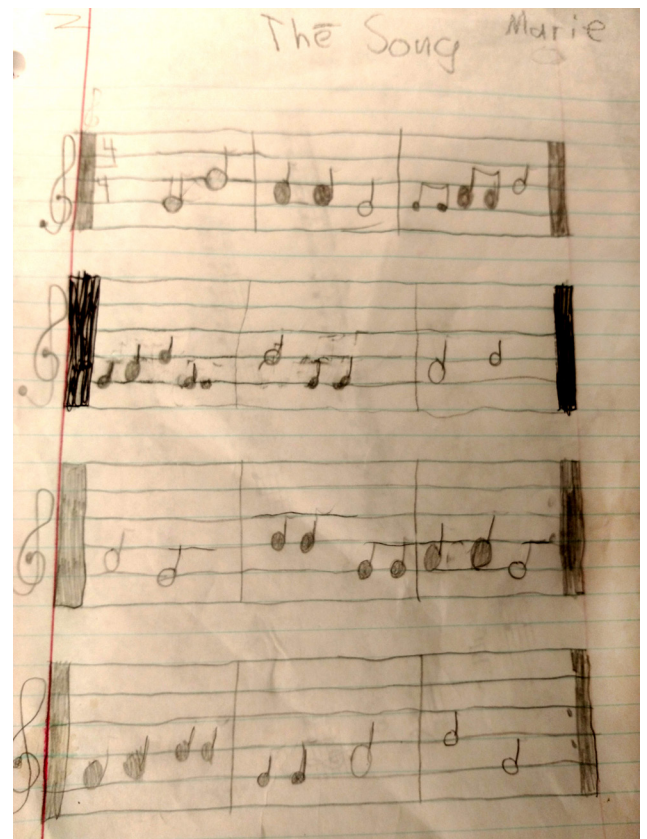 The Song Marie
4
4